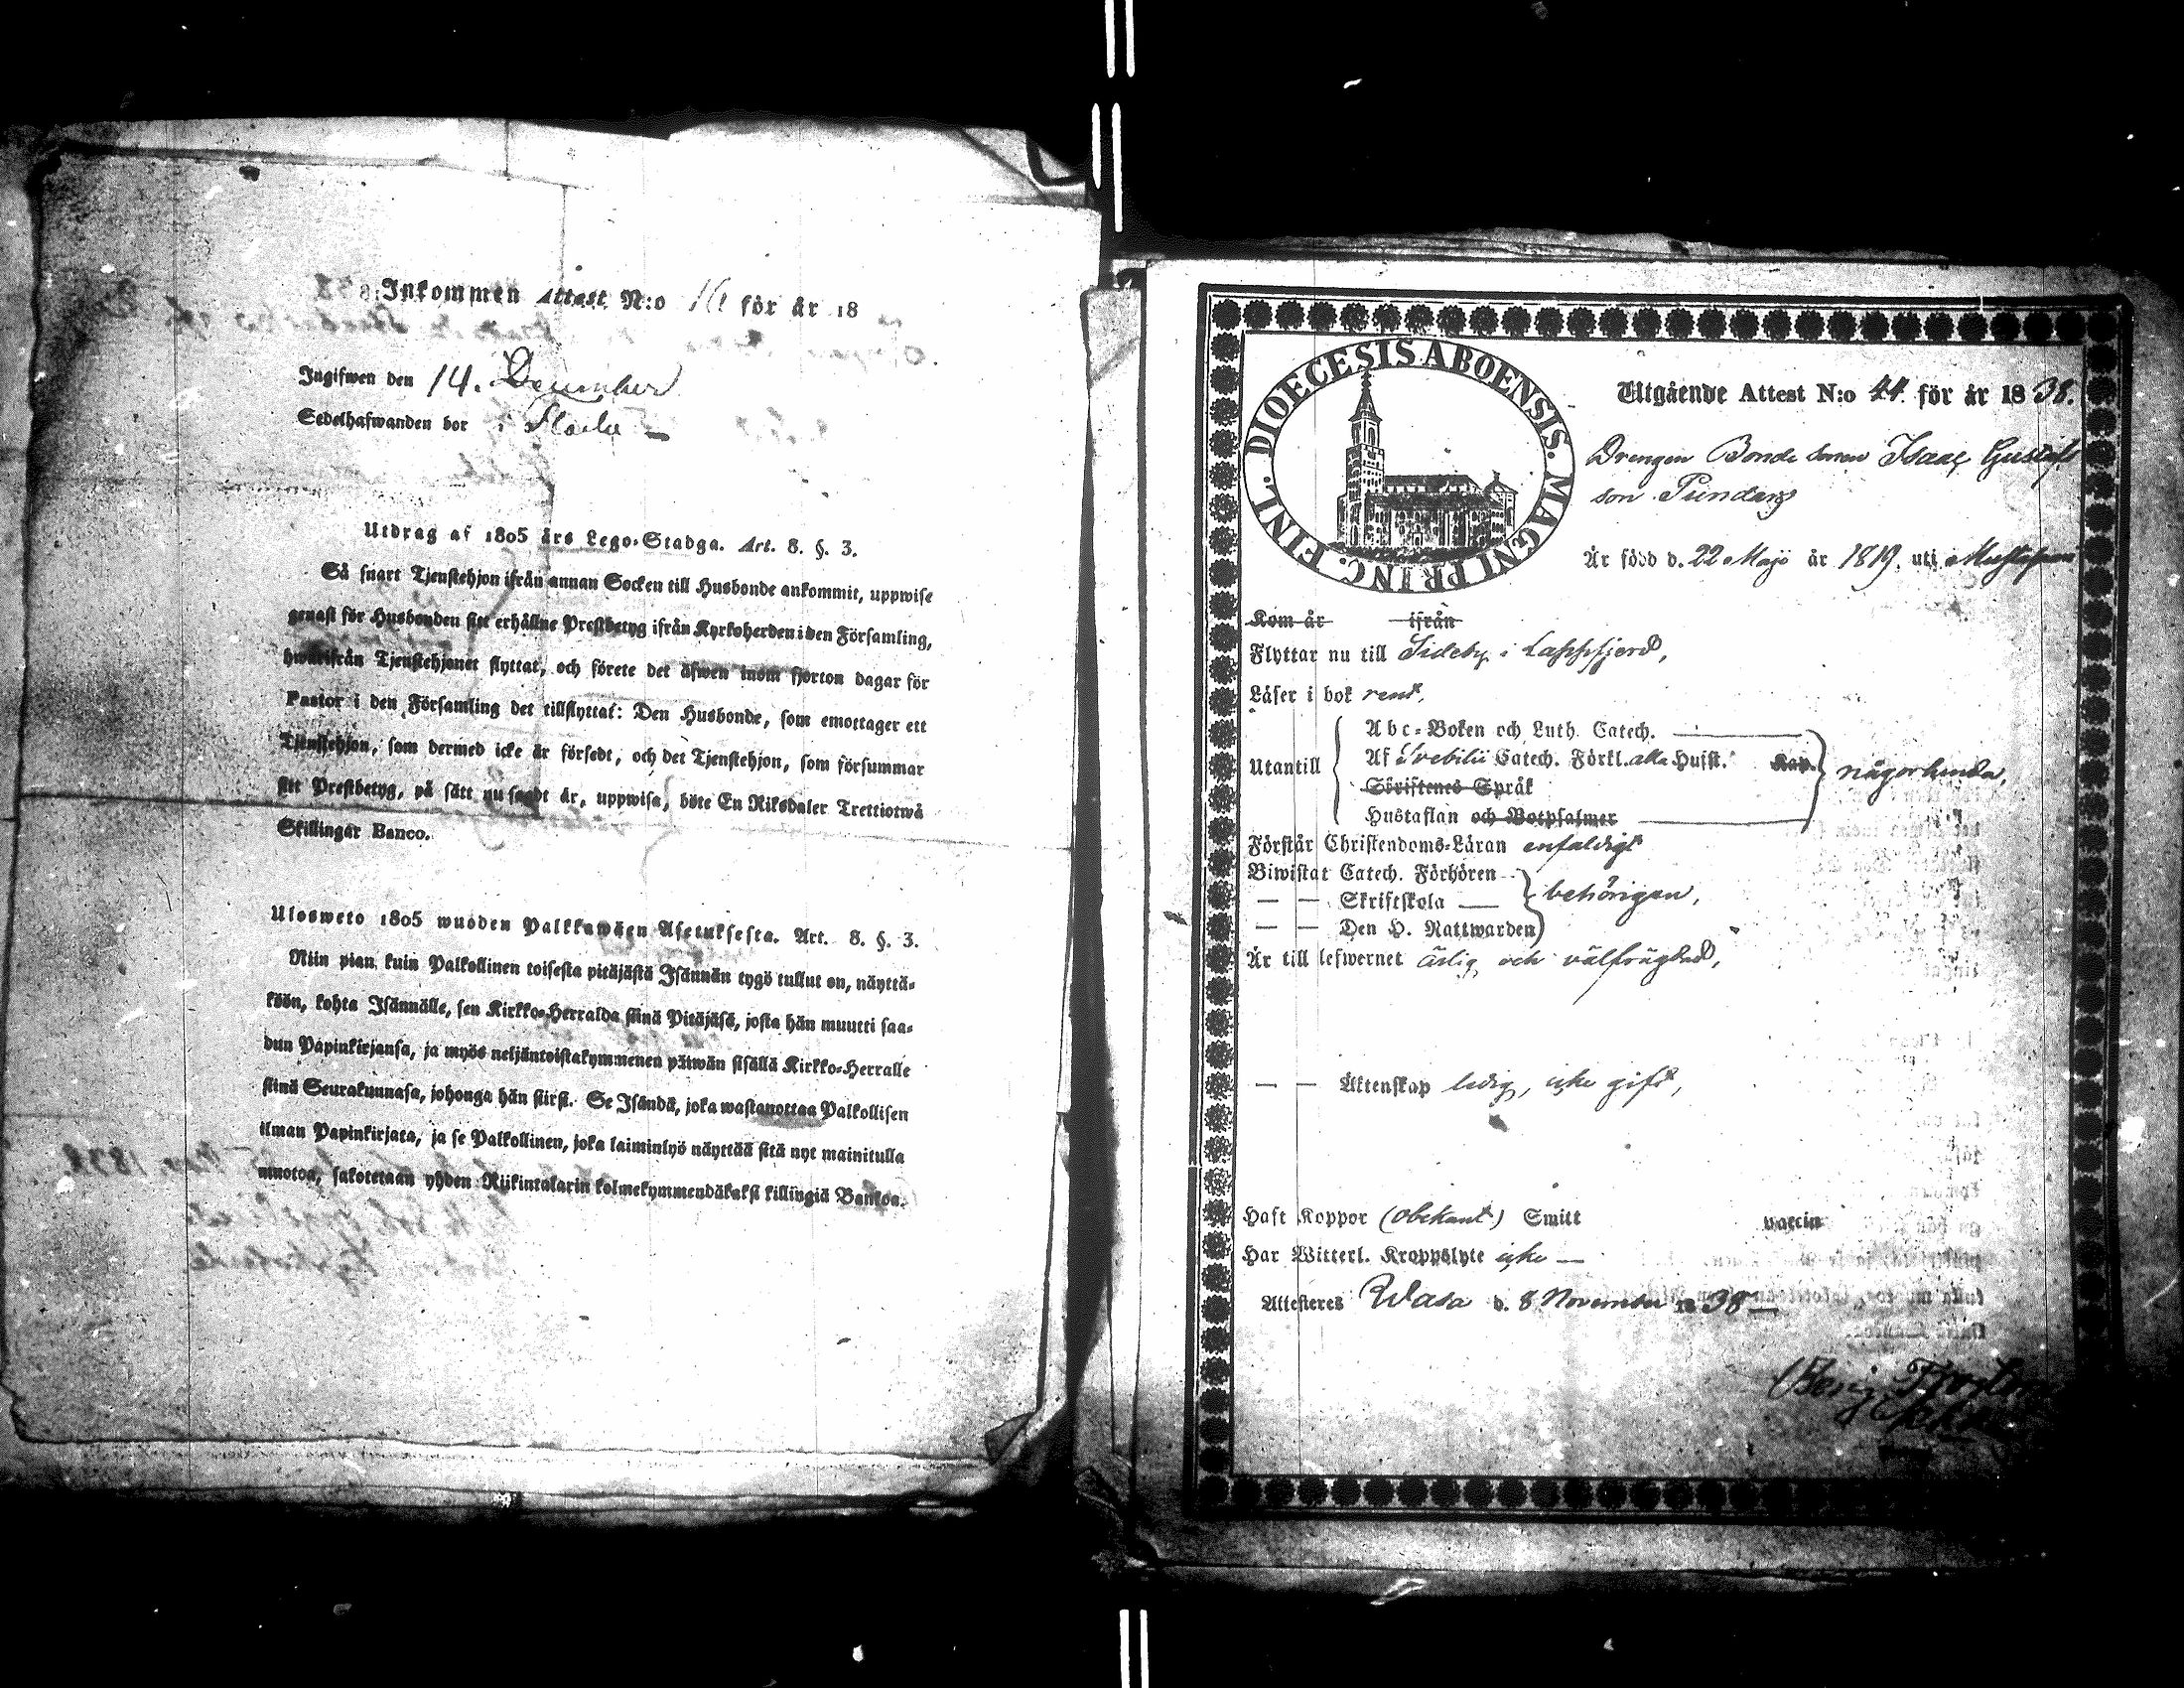 Inkommen Attest N:o 16 för år 18
Ingifwen den 14. December
Sedelhafwanden bor i
Utdrag af 1805 års Lego-Stadga. Art. 8. §. 3.
Så snart Tjenstehjon ifrån annan Socken till Husbonde ankommit, uppwise
genast för Husbonden sitt erhållne Prestbetyg ifrån Kyrkoherden i den Församling,
hwarifrån Tjenstehjonet flyttat, och förete det äfwen inom fjorton dagar för
Pastor i den Församling det tillflyttat: Den Husbonde, som emottager ett
Tjenstehjon, som dermed icke är försedt, och det Tjenstehjon, som försummar
sitt Prestbetyg, på sätt nu sagdt är, uppwisa, böte En Riksdaler Trettiotwå
Skillingar Banco.
Ulosweto 1805 wuoden Palkkawäen Asetuksesta. Art. 8. §. 3.
Niin pian kuin Palkollinen toisesta pitäjästä Isännän tygö tullut on, näyttä-
köön, kohta Isännälle, sen Kirkko-Herralda siinä Pitäjäsä, josta hän muutti saa-
dun Papinkirjansa, ja myös neljäntoistakymmenen päiwän sisällä Kirkko-Herralle
siinä Seurakunnasa, johonga hän siirsi. Se Isändä, joka wastanottaa Palkollisen
ilman Papinkirjata, ja se Palkollinen, joka laiminlyö näyttää sitä nyt mainitulla
muotoa, sakotetaan yhden Riikintalarin kolmekymmendäkaksi killingiä Bankoa.
DIOECESIS ABOENSIS. MAGNI PRINC. FINL.
Utgående Attest N:o 44 för år 1838.
Drengen Bonde sonen Isaac Gustafs
son Pundars
Är född d. 22 Maji år 1819. uti
Kom år ifrån
Flyttar nu till Sideby i Lappfjerd,
Läser i bok rent.
Abc-Boken och Luth. Catech.
Utantill Af Svebilii Catech. Förkl. alla Hufst. Kap. någorlunda,
Skriftenes Språk
Hustaflan och Botpsalmer
Förstår Christendoms-Läran enfaldigt
Biwistat Catech. Förhören
— — Skriftskola behörigen,
— — Den H. Nattwarden
Är till lefwernet ärlig och välfrägdad,
— — Äktenskap ledig, icke gift,
Haft Koppor (obekant) Smitt vaccin
Har Witterl. Kroppslyte icke —
Attesteras Wasa d. 8 November 1838 —